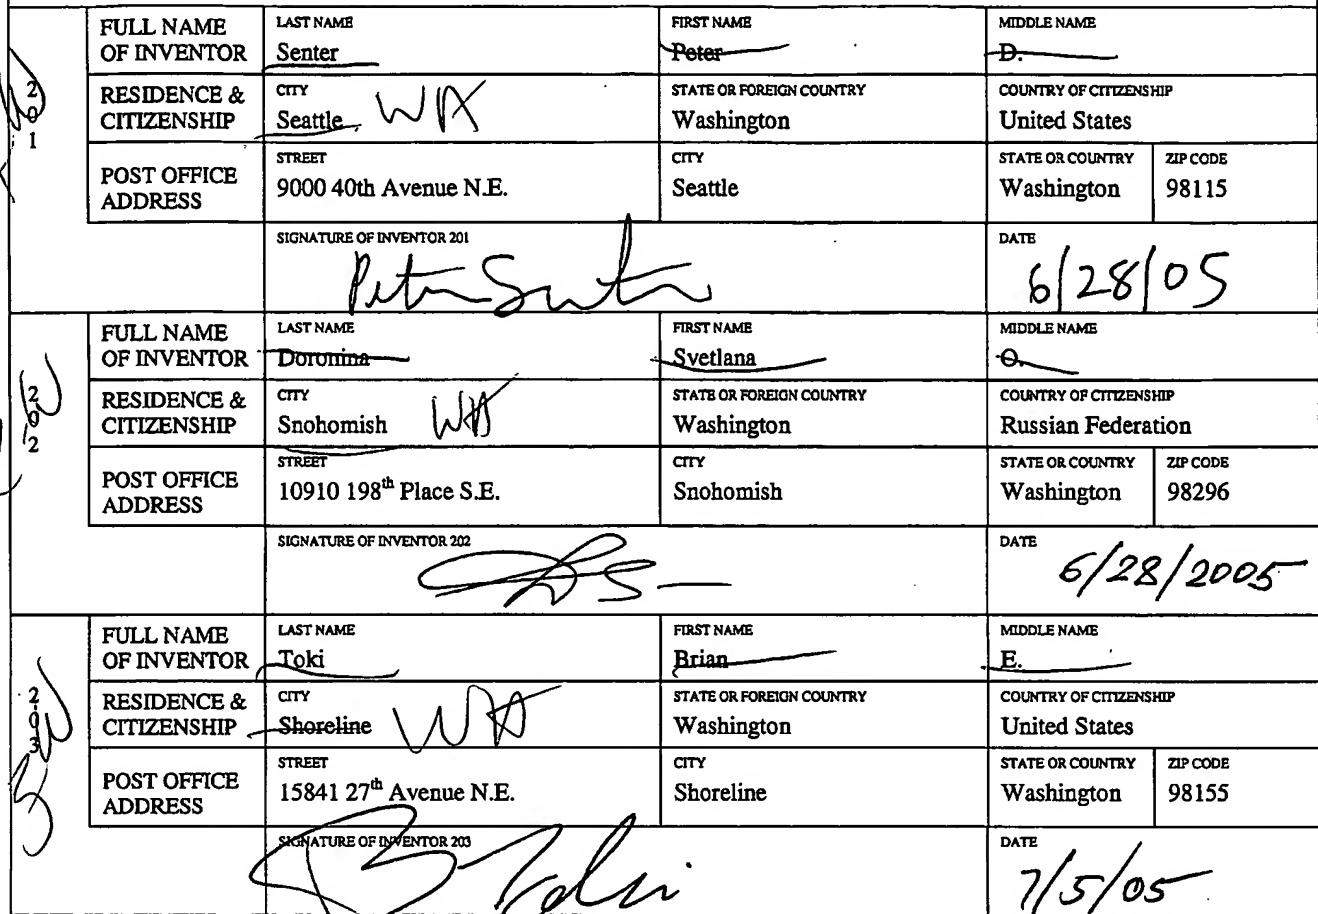 FULL NAME OF INVENTOR LAST NAME Senter FIRST NAME Peter MIDDLE NAME D.
201 RESIDENCE & CITIZENSHIP CITY Seattle WA STATE OR FOREIGN COUNTRY Washington COUNTRY OF CITIZENSHIP United States
POST OFFICE ADDRESS STREET 9000 40th Avenue N.E. CITY Seattle STATE OR COUNTRY Washington ZIP CODE 98115
SIGNATURE OF INVENTOR 201 Peter Senter DATE 6/28/05
FULL NAME OF INVENTOR LAST NAME Doronina FIRST NAME Svetlana MIDDLE NAME O.
202 RESIDENCE & CITIZENSHIP CITY Snohomish WA STATE OR FOREIGN COUNTRY Washington COUNTRY OF CITIZENSHIP Russian Federation
POST OFFICE ADDRESS STREET 10910 198th Place S.E. CITY Snohomish STATE OR COUNTRY Washington ZIP CODE 98296
SIGNATURE OF INVENTOR 202 DATE 6/28/2005
FULL NAME OF INVENTOR LAST NAME Toki FIRST NAME Brian MIDDLE NAME E.
203 RESIDENCE & CITIZENSHIP CITY Shoreline WA STATE OR FOREIGN COUNTRY Washington COUNTRY OF CITIZENSHIP United States
POST OFFICE ADDRESS STREET 15841 27th Avenue N.E. CITY Shoreline STATE OR COUNTRY Washington ZIP CODE 98155
SIGNATURE OF INVENTOR 203 B Toki DATE 7/5/05